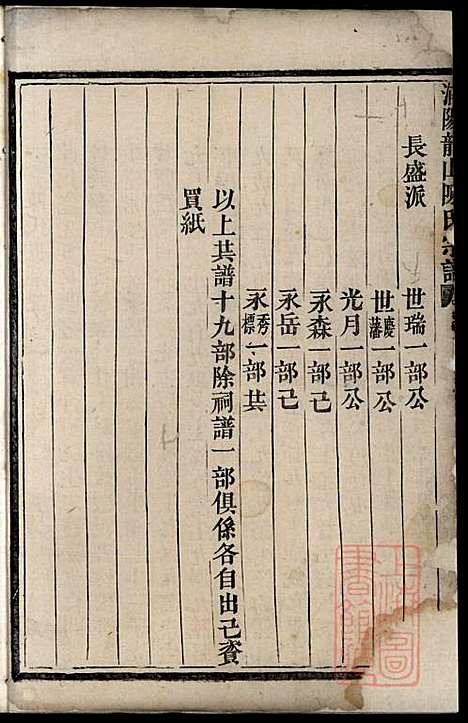 陽龍山陳氏宗譜
長盛派
世瑞一部公
世慶藩一部公
光月一部公
永森一部己
永岳一部己
永秀標一部共
以上共譜十九部除祠譜一部俱係各自出己資
買紙